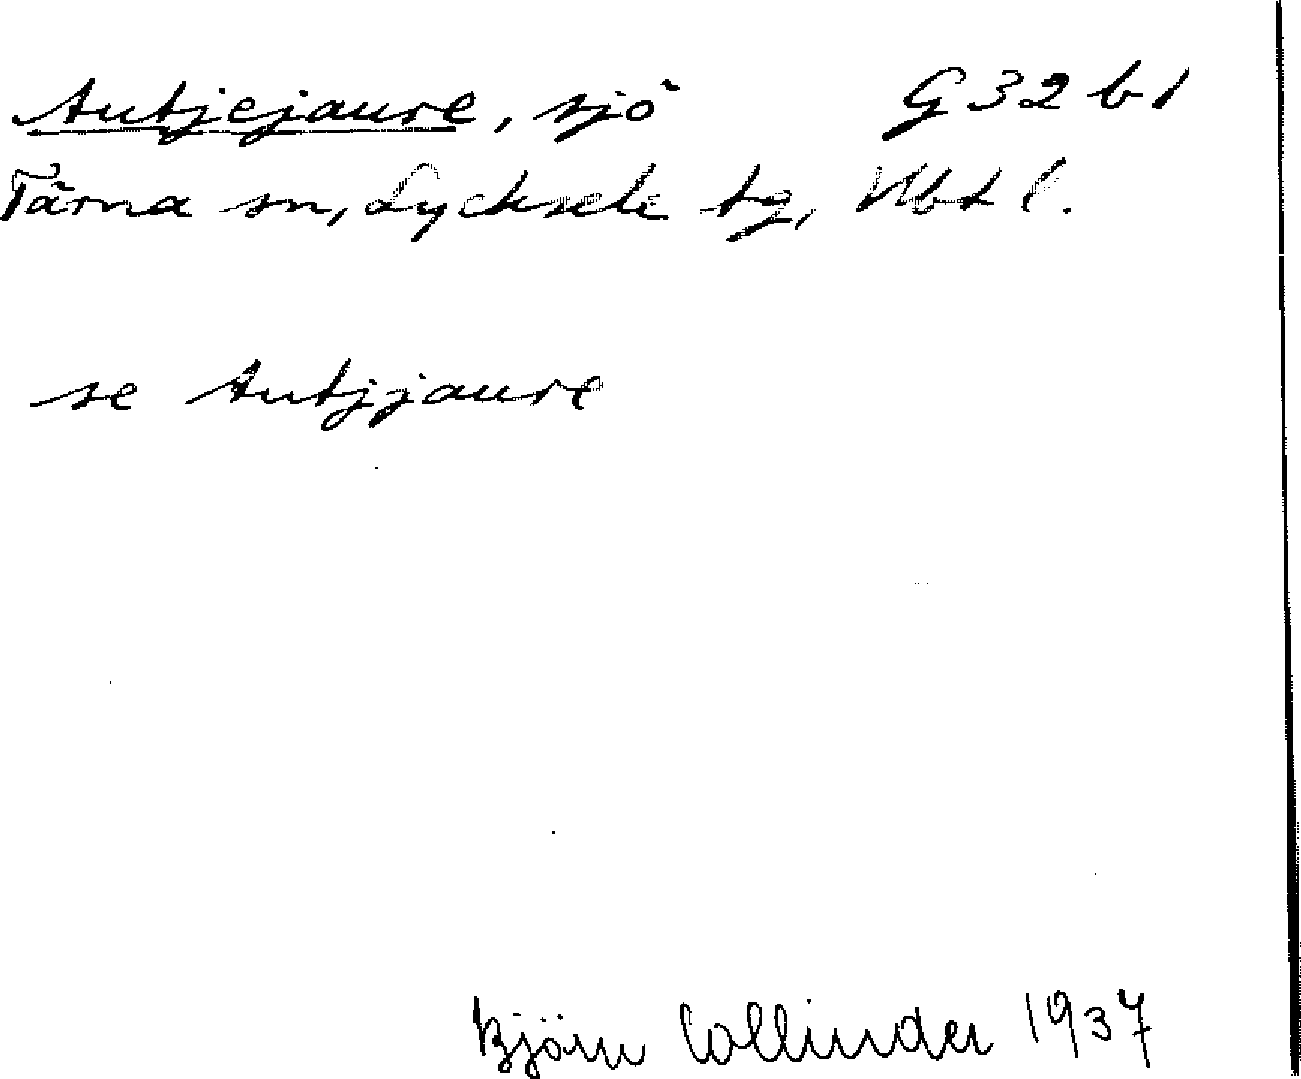 Autjejaure, sjö G 32 b 1
Tärna sn, Lycksele tg, Vbtl.
se Autjjaure
Björn Collinder 1937